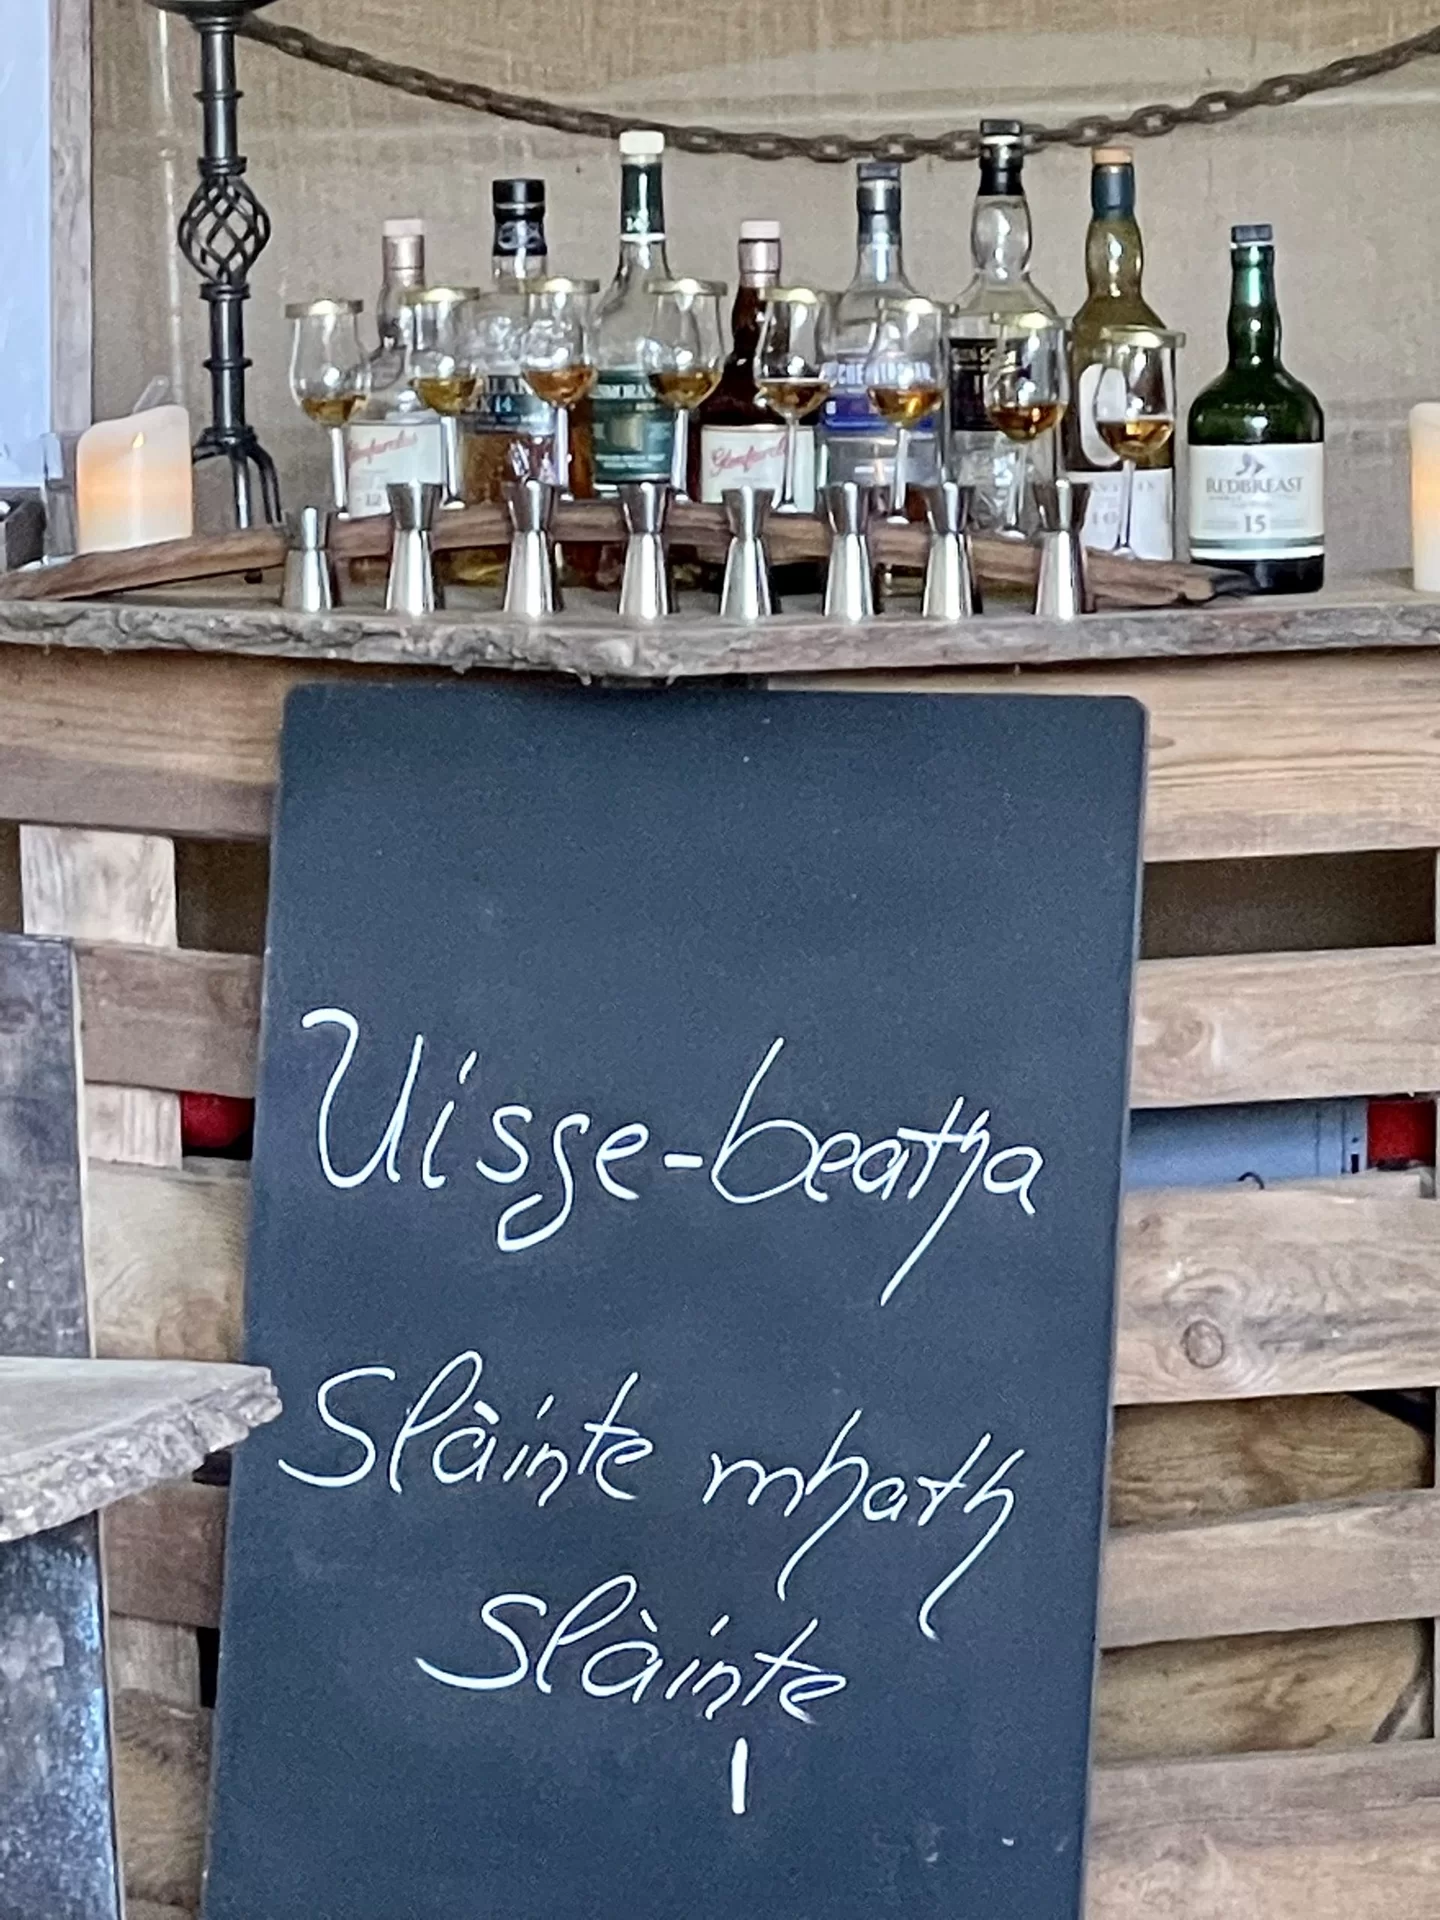 Glenfarclas
12
14
Glenfarclas
REDBREAST
15
10
Uisge-beatha
Slàinte mhath
Slàinte